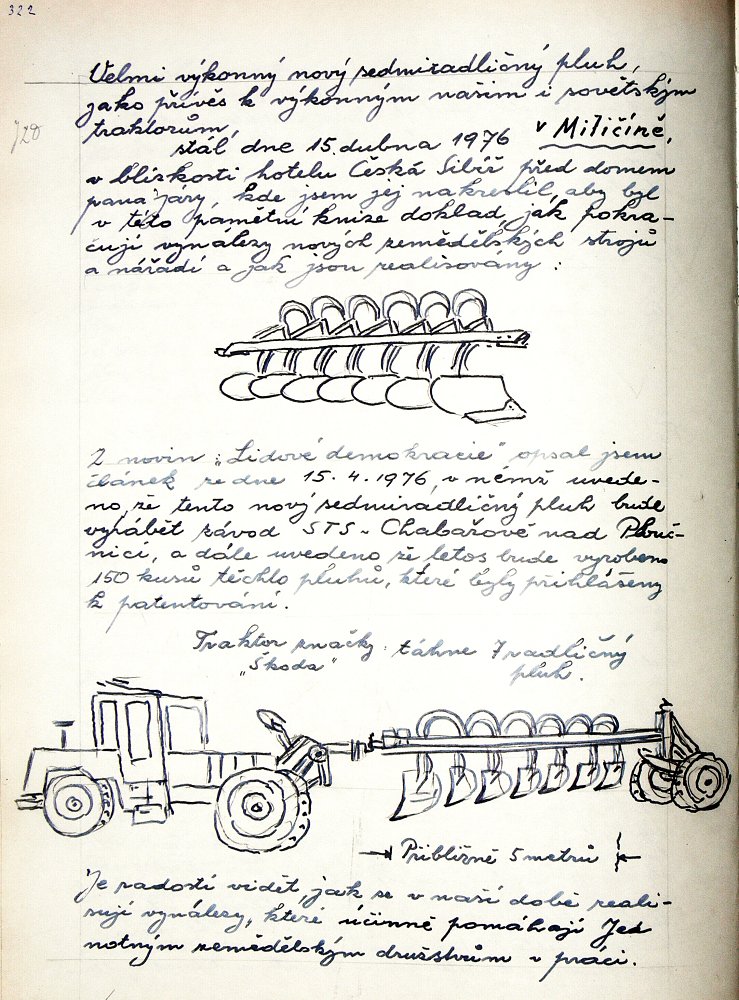 322
Velmi výkonný nový sedmiradličný pluh,
jako přívěs k výkonným našim i sovětským
traktorům,
stál dne 15. dubna 1976 v Miličíně,
v blízkosti hotelu Česká Sibiř před domem
pana Járy, kde jsem jej nakreslil, aby byl
v této pamětní knize doklad, jak pokra-
čují vynálezy nových zemědělských strojů
a nářadí a jak jsou realisovány:
Z novin „Lidové demokracie" opsal jsem
článek ze dne 15. 4. 1976, v němž uvede-
no, že tento nový sedmiradličný pluh bude
vyrábět závod STS - Chabařově nad
a dále uvedeno, že letos bude vyrobeno
150 kusů těchto pluhů, které byly přihlášeny
k patentování.
Traktor značky táhne 7 radličný
„Škoda" pluh.
Přibližně 5 metrů
Je radostí vidět, jak se v naší době reali-
sují vynálezy, které účinně pomáhají Jed
notným zemědělským družstvům v práci.